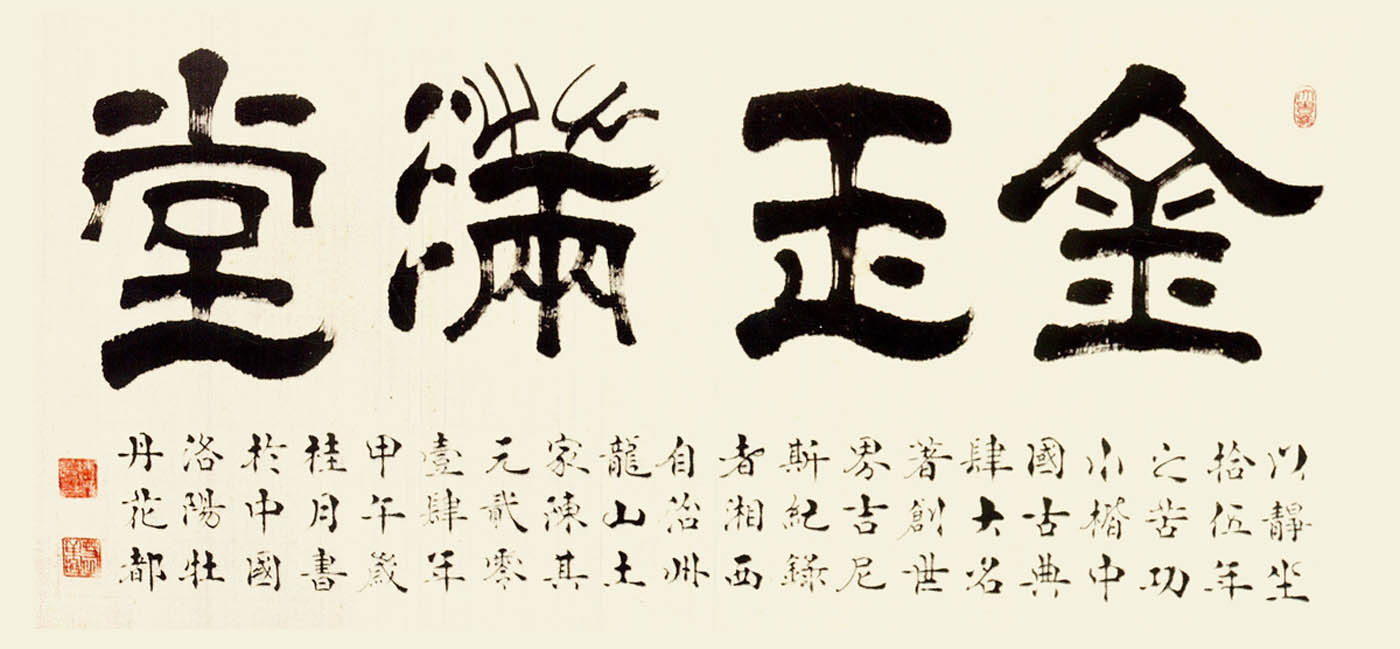 金玉滿堂
以靜坐
拾伍年
之苦功
小楷中
國古典
肆大名
著創世
界吉尼
斯紀錄
者湘西
自治州
龍山土
家陳其
元貳零
壹肆年
甲午歲
桂月書
於中國
洛陽牡
丹花都